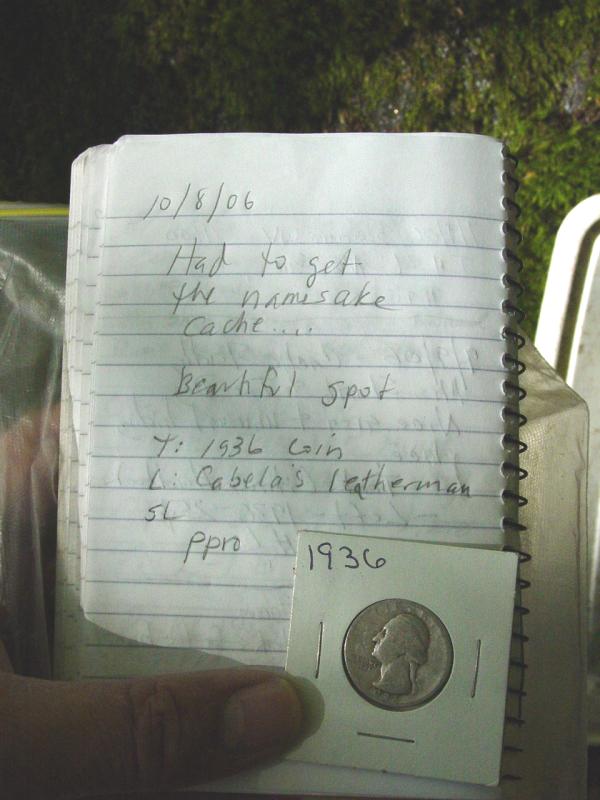 10/8/06
Had to get
the namesake
cache....
Beautiful spot
T: 1936 coin
L: Cabela's leatherman
SL
ppro
1936